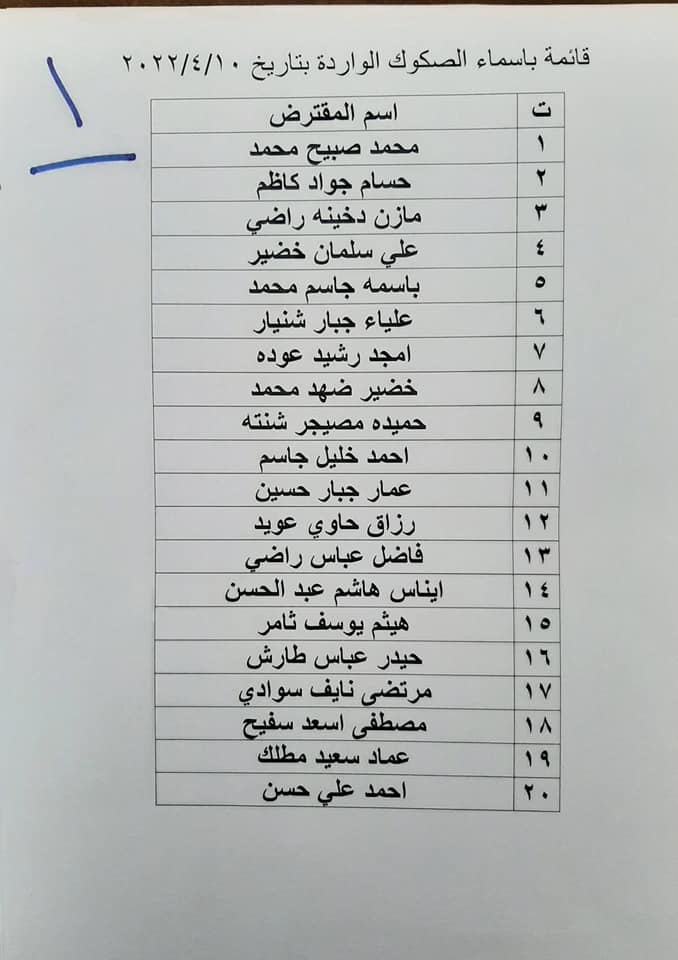 قائمة باسماء الصكوك الواردة بتاريخ ٢٠٢٢/٤/١٠
١
ت اسم المقترض
١ محمد صبيح محمد
٢ حسام جواد كاظم
٣ مازن دخينه راضي
٤ علي سلمان خضير
٥ باسمه جاسم محمد
٦ علياء جبار شنيار
٧ امجد رشيد عوده
٨ خضير ضهد محمد
٩ حميده مصيجر شنته
١٠ احمد خليل جاسم
١١ عمار جبار حسين
١٢ رزاق حاوي عويد
١٣ فاضل عباس راضي
١٤ ايناس هاشم عبد الحسن
١٥ هيثم يوسف ثامر
١٦ حيدر عباس طارش
١٧ مرتضى نايف سوادي
١٨ مصطفى اسعد سفيح
١٩ عماد سعيد مطلك
٢٠ احمد علي حسن